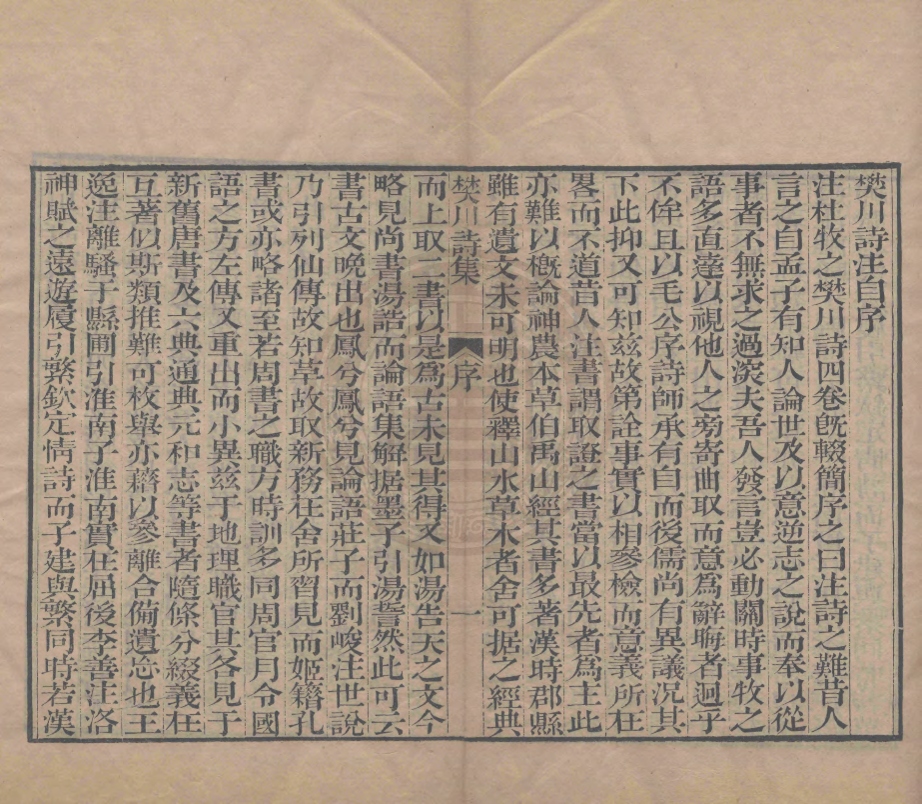 樊川詩注自序
注杜牧之樊川詩四卷旣輟簡序之曰注詩之難昔人
言之自孟子有知人論世及以意逆志之說而奉以從
事者不無求之過深夫吾人發言豈必動關時事牧之
語多直達以視他人之旁寄曲取而意為辭晦者迥乎
不侔且以毛公序詩師承有自而後儒尚有異議况其
下此抑又可知兹故第詮事實以相參檢而意義所在
畧而不道昔人注書謂取證之書當以最先者為主此
亦難以槪論神農本草伯禹山經其書多著漢時郡縣
雖有遺文未可明也使釋山水草木者舍可据之經典
樊川詩集 序 一
而上取二書以是為古未見其得又如湯告天之文今
略見尚書湯誥而論語集解据墨子引湯誓然此可云
書古文晚出也鳳兮鳳兮見論語莊子而劉峻注世說
乃引列仙傳故知草故取新務在舍所習見而姬籍孔
書或亦略諸至若周書之職方時訓多同周官月令國
語之方左傳又重出而小異兹于地理職官其各見于
新舊唐書及六典通典元和志等書者隨條分綴義在
互著似斯類推難可枚舉亦藉以參離合備遺忘也王
逸注離騷于縣圃引淮南子淮南實在屈後李善注洛
神賦之遠遊履引繁欽定情詩而子建與繁同時若漢